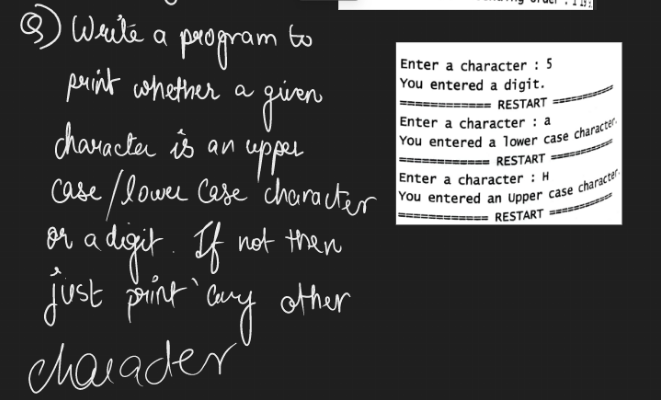 Q) Write a program to
print whether a given
character is an upper
case/lower case character
or a digit. If not then
just print 'any other
character'
Enter a character : 5
You entered a digit.
============= RESTART =========
Enter a character : a
You entered a lower case character.
============= RESTART =========
Enter a character : H
You entered an Upper case character.
============= RESTART =========